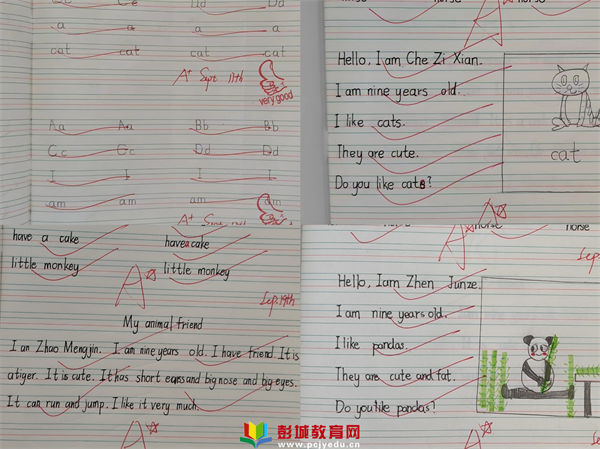 Cc Cc Dd Dd
a a a a
cat cat cat cat
A+ Sept 11th
very good
Aa Aa Bb Bb
Cc Cc Dd Dd
I I I I
am am am am
A+
horse
A
Hello, I am Che Zi Xian.
I am nine years old.
I like cats.
They are cute.
Do you like cats?
cat
A
have a cake have a cake
little monkey little monkey
A
Sep.19th
My animal friend
I am Zhao Mengjin. I am nine years old. I have friend. It is
a tiger. It is cute. It has short ears and big nose and big eyes.
It can run and jump. I like it very much.
A
horse horse
A
Sep.
Hello, I am Zhen Junze.
I am nine years old.
I like pandas.
They are cute and fat.
Do you like pandas?
A
彭城教育网
www.pcjyedu.cn